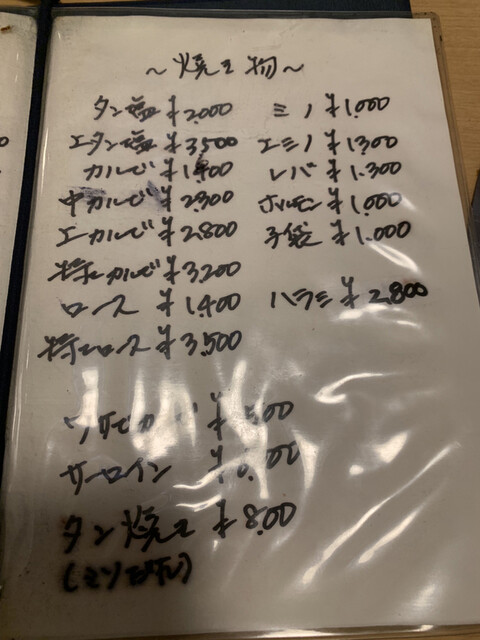 ~焼き物~
タン塩 ¥2,000
上タン塩 ¥3,500
カルビ ¥1,400
中カルビ ¥2,300
上カルビ ¥2,800
特上カルビ ¥3,200
ロース ¥1,400
特上ロース ¥3,500
ミノ ¥1,000
上ミノ ¥1,300
レバ ¥1,300
ホルモン ¥1,000
子袋 ¥1,000
ハラミ ¥2,800
サーロイン
タン焼き ¥800